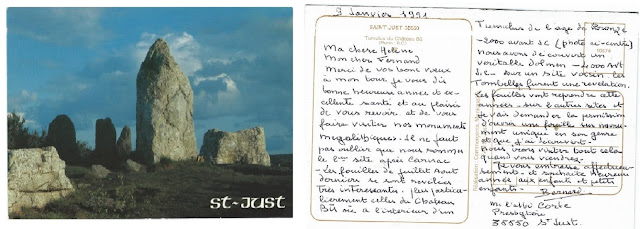 St-JUST
9 Janvier 1991
SAINT JUST 35550
Tumulus du Château Bû
Ma chère Hélène
Mon cher Fernand
Merci de vos bons vœux
à mon tour je vous dis
bonne heureuse année et ex-
cellente santé et au plaisir
de vous revoir, et de vous
faire visiter nos monuments
mégalithiques. Il ne faut
pas oublier que nous sommes
le 2ème site après Carnac
- Les fouilles de juillet Aout
derniers se sont révélées
très intéressantes, plus parti-
culièrement celles du Château
Bû sis à l'intérieur d'un
Tumulus de l'age du Bronze
-2000 avant JC (photo ci-contre)
nous avons découvert un
véritable dolmen -4000 AVT
J.C. sur un site voisin les
Tombelles furent une révélation.
Les fouilles vont reprendre cette
année sur d'autres sites et
je vais demander la permission
d'ouvrir une fouille sur monu-
ment unique en son genre
et que j'ai découvert.
Vous viendrez visiter tout cela
quand vous viendrez.
Je vous embrasse affectueu-
sement et souhaite heureuse
année aux enfants et petits
enfants.
Bernard
M. l'abbé Corbe
Presbytère
35550 St Just.